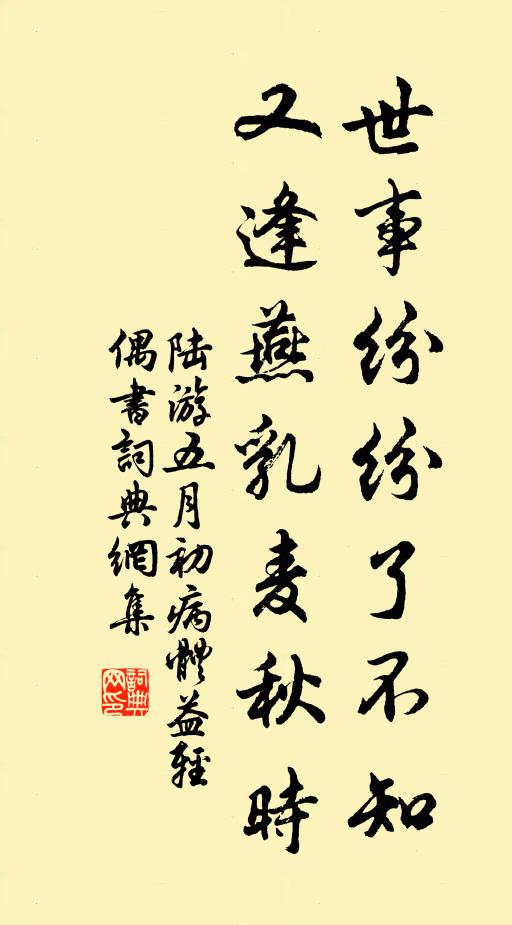 世事紛紛了不知
又逢燕乳麦秋時
陆游五月初病體益輕
偶書詞典網集
詞典
网印